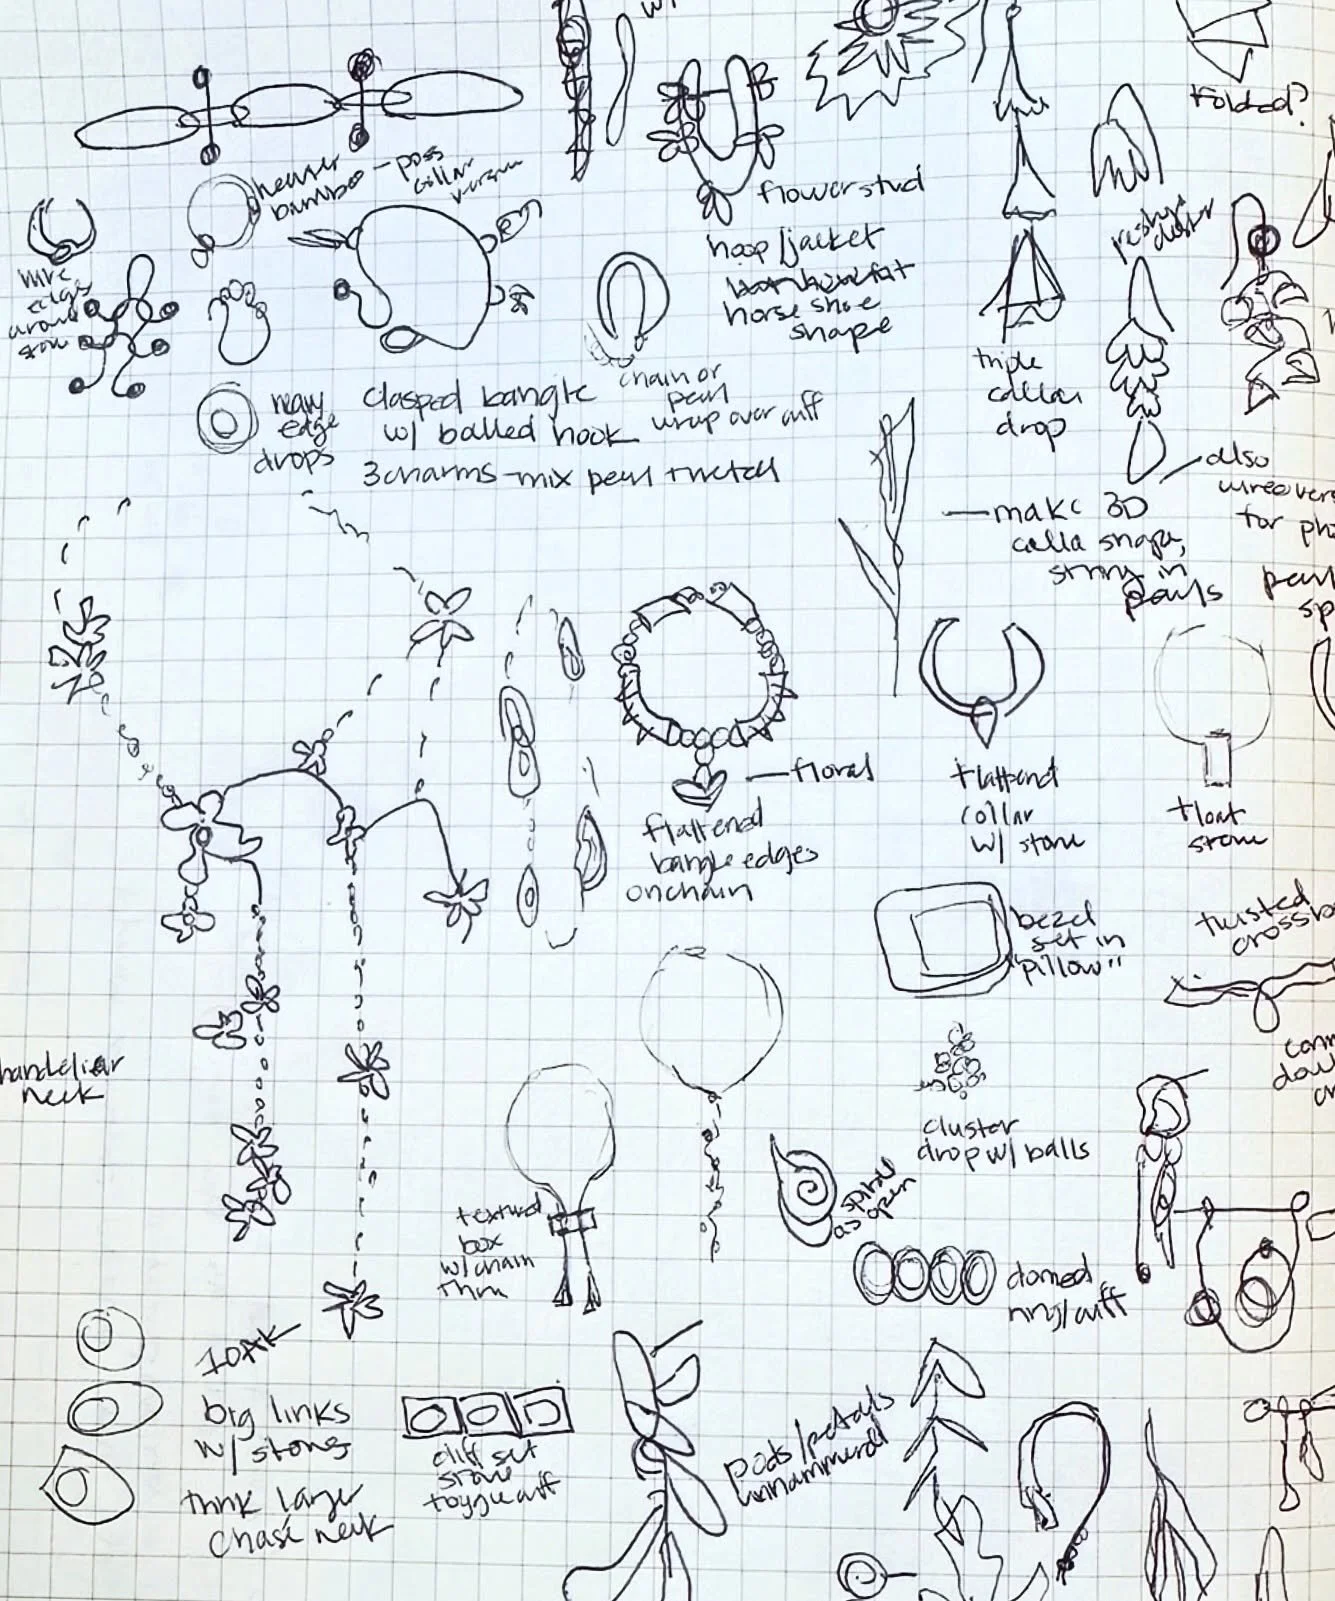 Folded?
heavier
bamboo – poss
collar
version
flower stud
hoop/jacket
horse shoe
shape
wire
edges
around
stone
heavy
edge
drops
clasped bangle
w/ balled hook
3 charms – mix pearl + metal
chain or
pearl
wrap over cuff
triple
calla
drop
also
wire overs
for
make 3D
calla shape,
string in
pearls
pearl
sp
floral
flattened
bangle edges
on chain
flattend
collar
w/ stone
float
stone
bezel
set in
"pillow"
twisted
handelier
neck
cluster
drop w/ balls
spiral
as open
textured
box
w/ chain
thru
domed
ring/cuff
10AK
big links
w/ stones
think larger
chase neck
diff set
stone
toggle cuff
pods/petals
unhammered